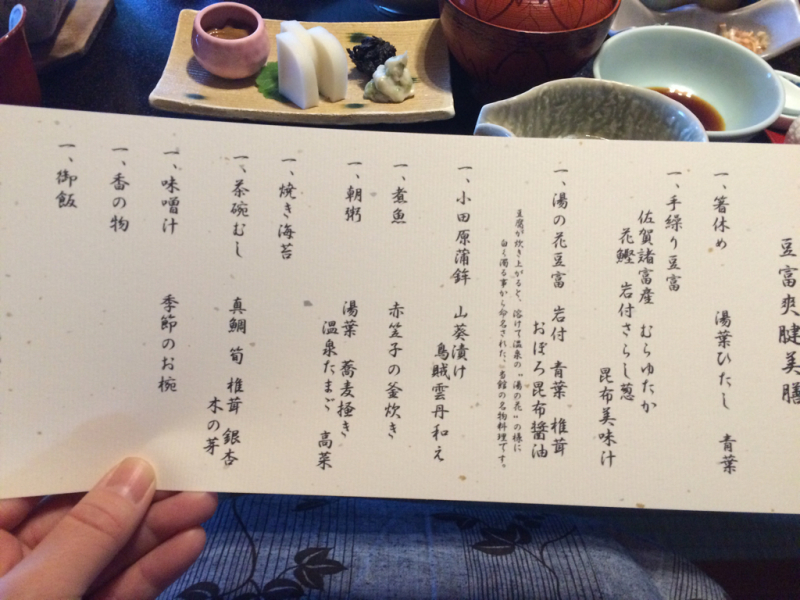 豆富爽腱美膳
一、箸休め　湯葉ひたし　青菜
一、手繰り豆富
佐賀諸富産　むらゆたか
花鰹　岩付さらし葱
昆布美味汁
一、湯の花豆富　岩付　青葉　椎茸
おぼろ昆布醤油
豆腐が炊き上がると、溶けて温泉の〝湯の花〟の様に
白く濁る事から命名された、当館の名物料理です。
一、小田原蒲鉾　山葵漬け
烏賊雲丹和え
一、煮魚　赤笠子の釜炊き
一、朝粥　湯葉　蕎麦掻き
温泉たまご　高菜
一、焼き海苔
一、茶碗むし　真鯛　筍　椎茸　銀杏
木の芽
一、味噌汁　季節のお椀
一、香の物
一、御飯